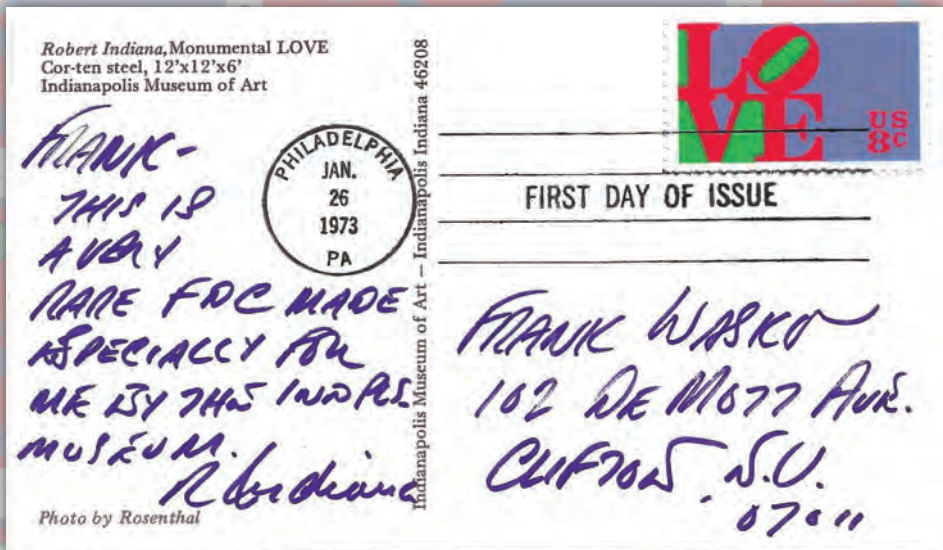 Robert Indiana, Monumental LOVE
Cor-ten steel, 12'x12'x6'
Indianapolis Museum of Art
FRANK-
THIS IS
A VERY
RARE FDC MADE
ESPECIALLY FOR
ME BY THE INDPLS.
MUSEUM.
R Indiana
Photo by Rosenthal
PHILADELPHIA
JAN.
26
1973
PA
Indianapolis Museum of Art – Indianapolis Indiana 46208
LO
VE
US
8c
FIRST DAY OF ISSUE
FRANK WASKO
102 DE MOTT AVE.
CLIFTON, N.J.
07011